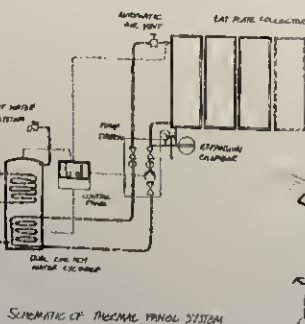 AUTOMATIC
AIR VENT
FLAT PLATE COLLECTOR
WATER
SYSTEM
PUMP
STATION
EXPANSION
CONTROL
PANEL
DUAL COIL HOT
WATER CYLINDER
SCHEMATIC OF THERMAL PANEL SYSTEM